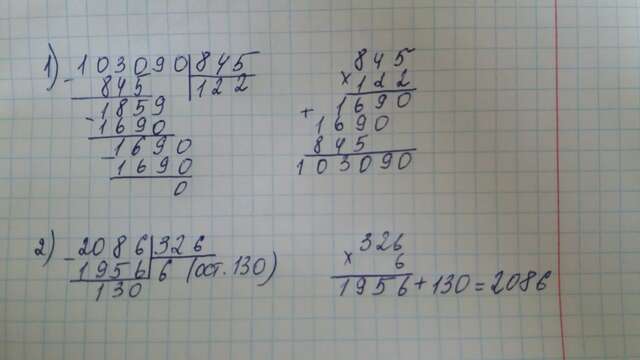 1) 103090 | 845
- 845 | 122
1859
- 1690
1690
- 1690
0
845
× 122
1690
+ 1690
845
103090
2) 2086 | 326
- 1956 | 6 (ост. 130)
130
326
× 6
1956 + 130 = 2086